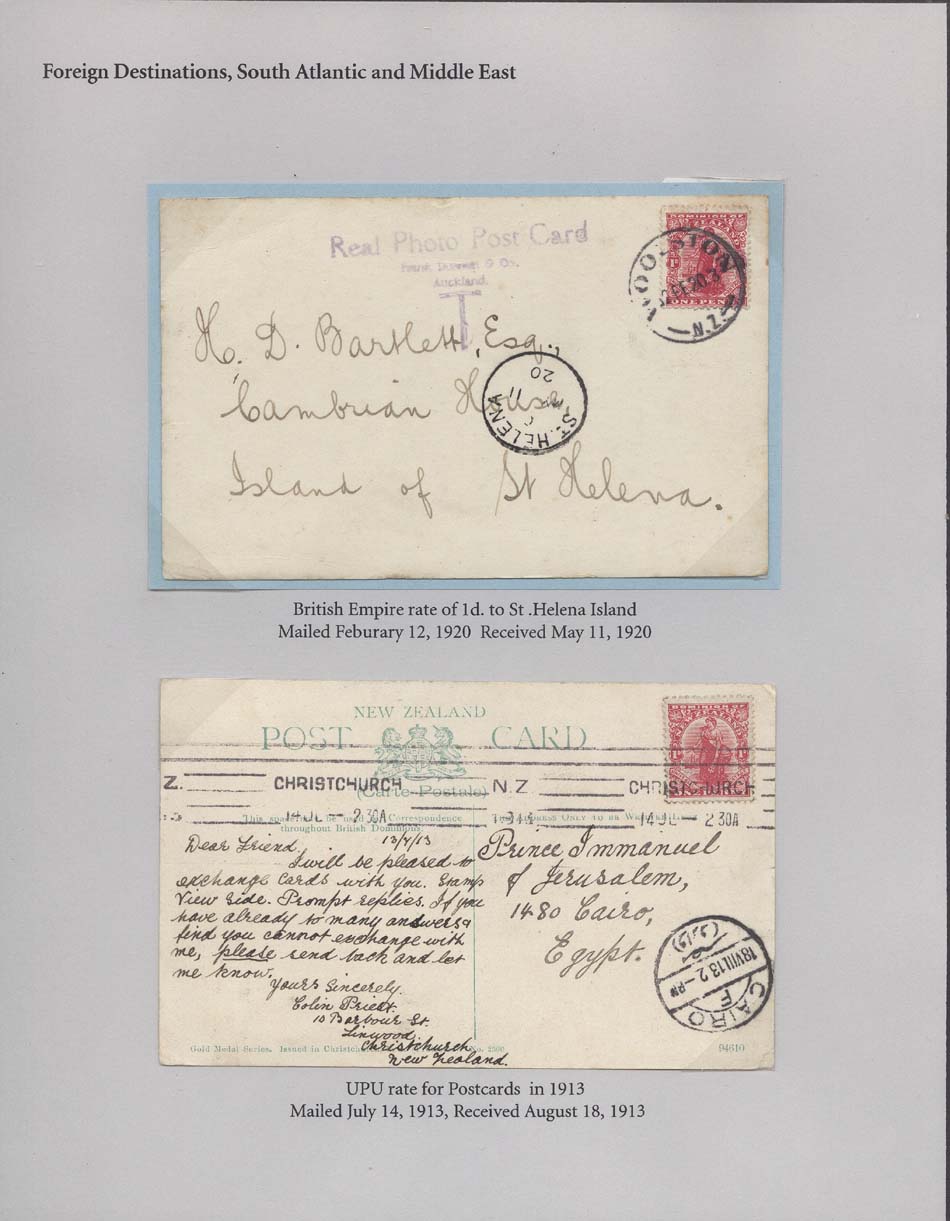 Foreign Destinations, South Atlantic and Middle East
Real Photo Post Card
& Co.
Auckland.
T
DOMINION OF
NEW ZEALAND
1D
ONE PENNY
WOOLSTON
12 FE 20
N.Z
H. D. Bartlett, Esq.,
Cambrian House
Island of St Helena.
ST. HELENA
11
20
British Empire rate of 1d. to St .Helena Island
Mailed Feburary 12, 1920 Received May 11, 1920
NEW ZEALAND
POST CARD
(Carte Postale)
DOMINION OF
NEW ZEALAND
Z. CHRISTCHURCH N.Z CHRISTCHURCH
14 JL - 2 30A 14 JL - 2 30A
This space may be used for Correspondence
throughout British Dominions.
The Address Only to be Written
13/7/13
Dear Friend,
I will be pleased to
exchange cards with you. Stamp
View side. Prompt replies. If you
have already to many answers &
find you cannot exchange with
me, please send back and let
me know.
Yours Sincerely.
Colin Priest.
10 Barbour St.
Linwood.
Christchurch
New Zealand.
Prince Immanuel
of Jerusalem,
1480 Cairo,
Egypt.
18.VIII.13 2-PM
CAIRO
F
Gold Medal Series. Issued in Christchurch No. 2500
94610
UPU rate for Postcards in 1913
Mailed July 14, 1913, Received August 18, 1913